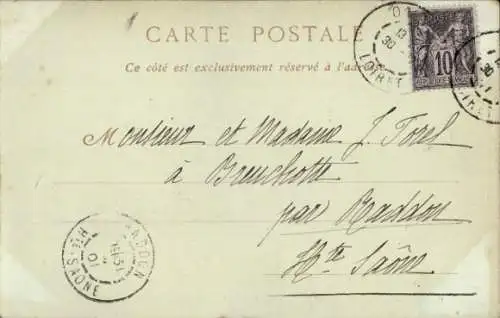 CARTE POSTALE
Ce côté est exclusivement réservé à l'adresse
POSTE
10
LOIRET
Monsieur et Madame J. Torel
à Breuchotte
par Raddon
Hte Saône
RADDON
Hte-SAONE
01